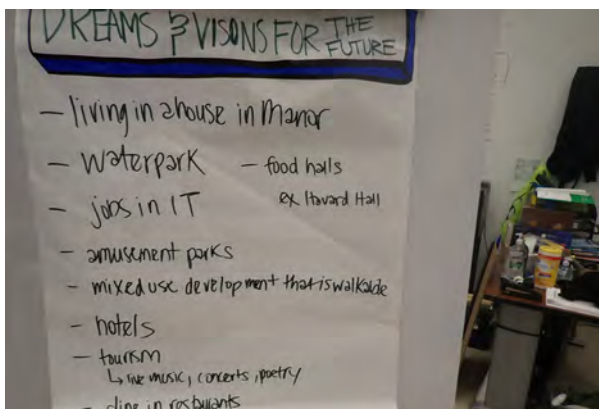 DREAMS & VISONS FOR THE FUTURE
- living in a house in Manor
- waterpark - food halls
- jobs in IT ex Havard Hall
- amusement parks
- mixed use development that is walkable
- hotels
- tourism
↳ live music, concerts, poetry
- dine in restaurants